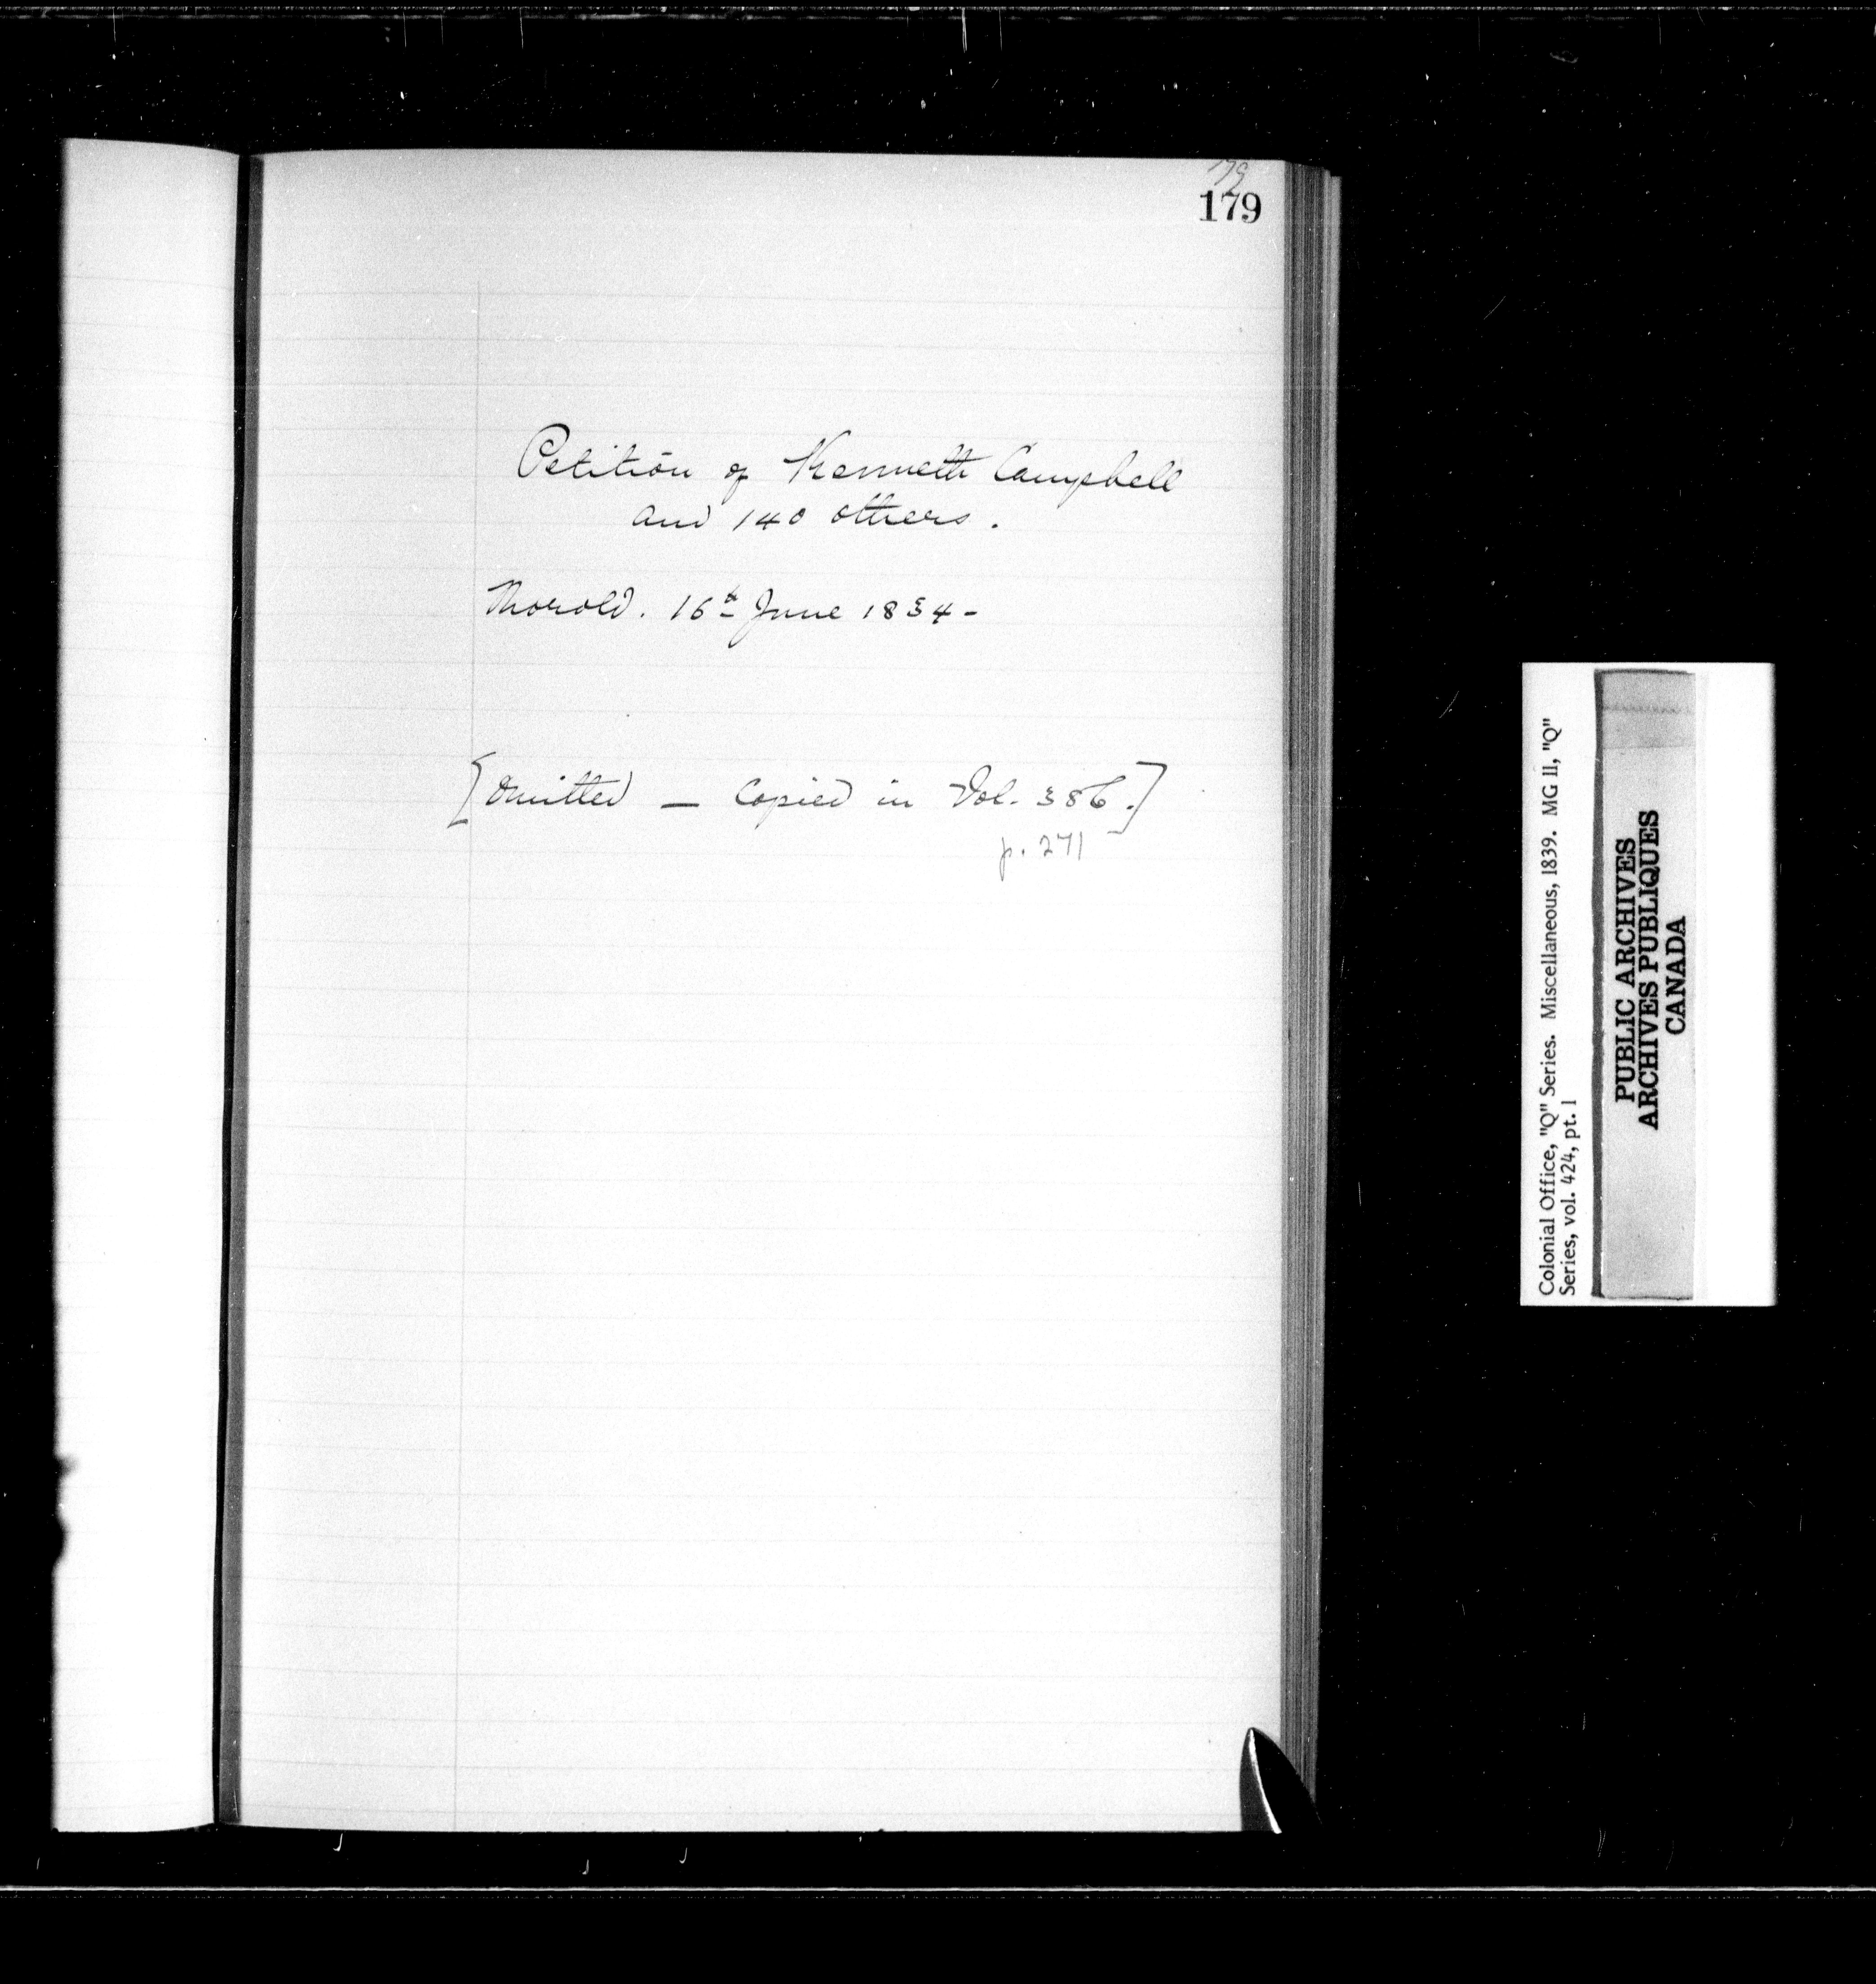 179
179
Petition of Kenneth Campbell
and 140 others.
Thorold. 16th June 1834-
[Omitted — Copied in Vol. 386.]
p. 271
Colonial Office, "Q" Series. Miscellaneous, 1839. MG 11, "Q"
Series, vol. 424, pt. 1
PUBLIC ARCHIVES
ARCHIVES PUBLIQUES
CANADA